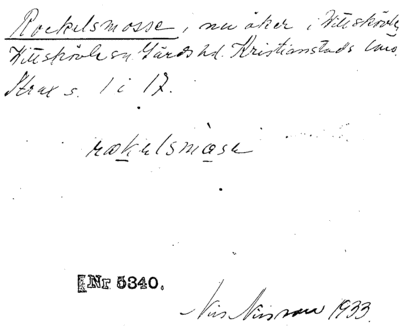 Rockelsmosse, nu åker i Vittskövle
Vittskövle sn Gärds hd. Kristianstads län.
Strax s. 1 i 17.
rωkelsmåsa
[Nr 5340.
Nils Nilsson 1933.